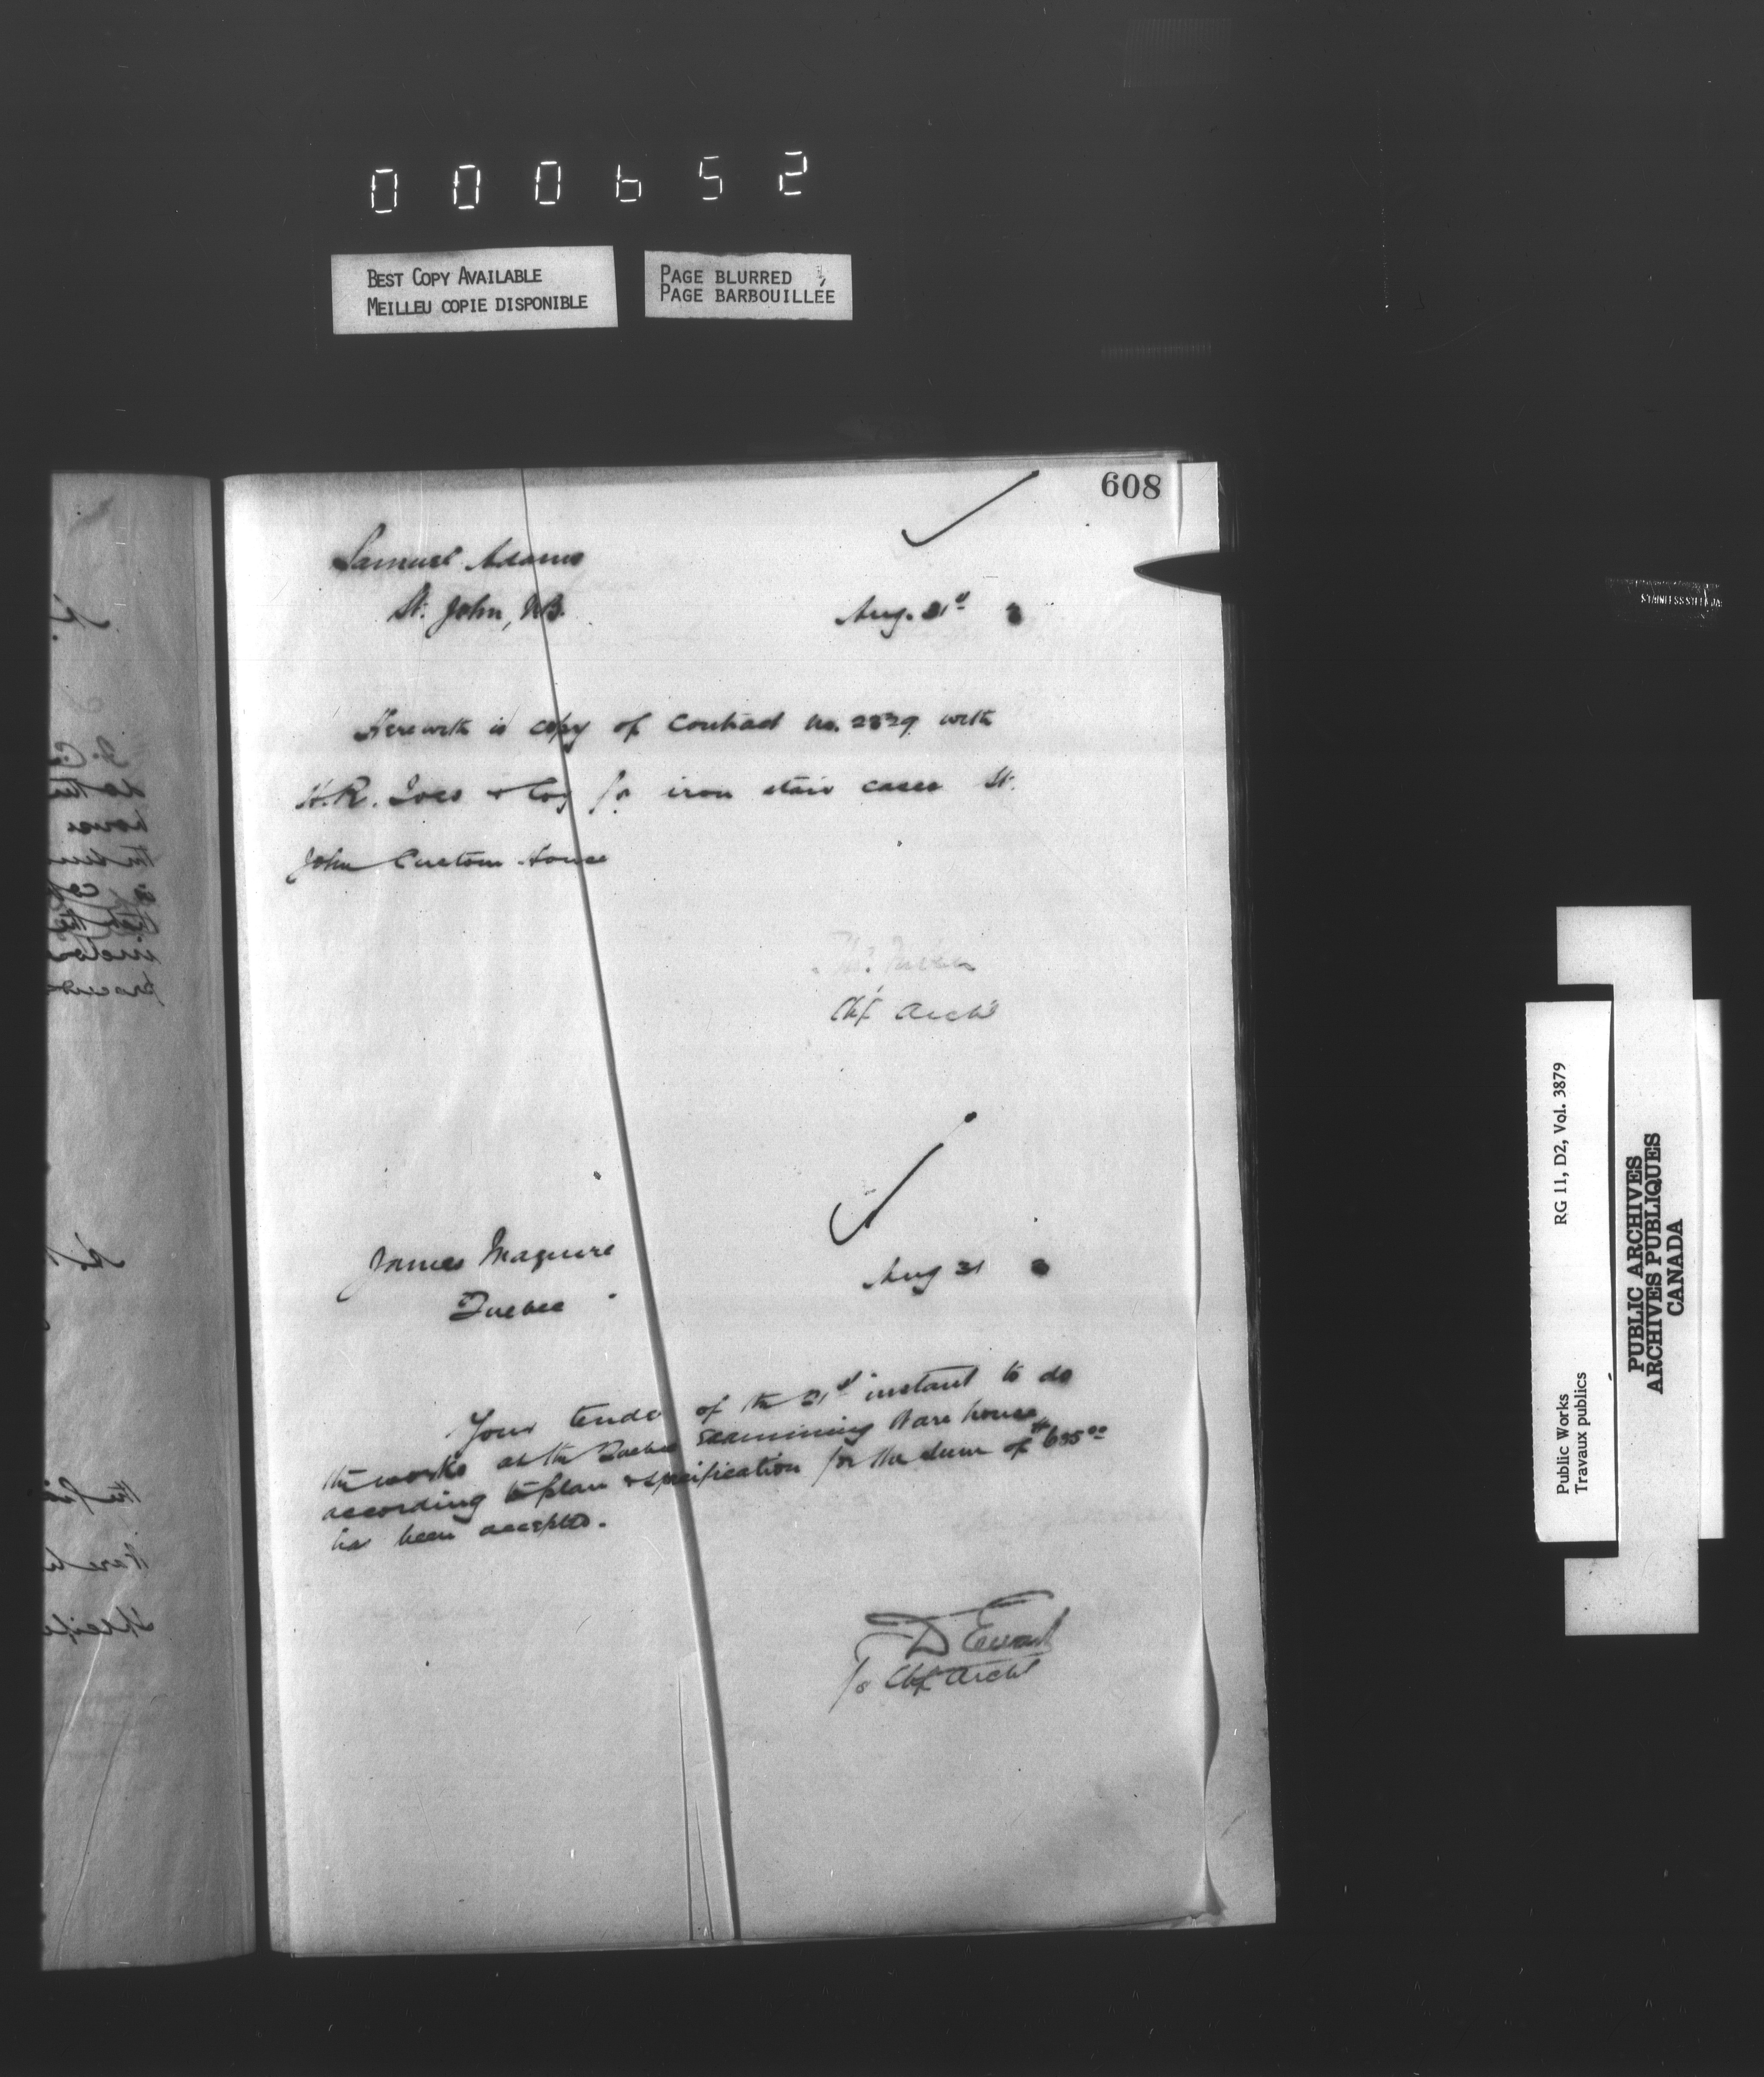 000652
BEST COPY AVAILABLE
MEILLEU COPIE DISPONIBLE
PAGE BLURRED
PAGE BARBOUILLÉE
608
Samuel Adams
St. John, NB.
Aug. 31st 3
Herewith is copy of contract no. 2829 with
H.R. Ives & Coy for iron stair cases St.
John Custom House
Chf Archt
James Maguire
Quebec
Aug 31 3
Your tender of the 21st instant to do
the works at the Quebec Examining Ware house
according to plan & specification for the sum of $695.00
has been accepted.
D Ewart
for Chf Archt
STAINLESS STEEL
RG 11, D2, Vol. 3879
Public Works
Travaux publics
PUBLIC ARCHIVES
ARCHIVES PUBLIQUES
CANADA